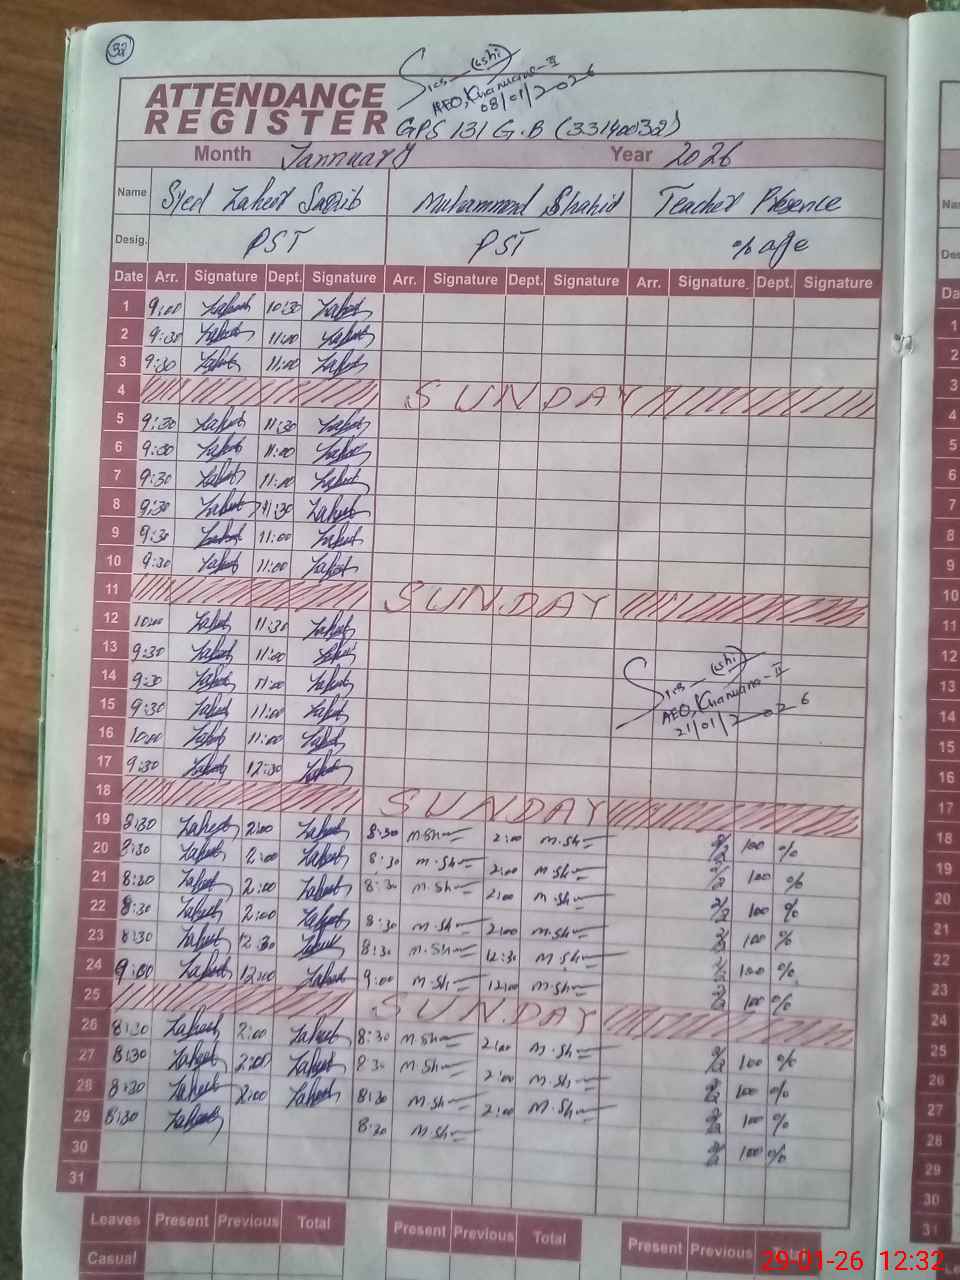 32
(shi)
AEO, Khanuana-II
08/01/2026
ATTENDANCE
REGISTER
GPS 131 G.B (33140032)
Month Jannuary Year 2026
Name Syed Zaheer Saqib Muhammad Shahid Teacher Presence
Desig. PST PST %age
Date Arr. Signature Dept. Signature Arr. Signature Dept. Signature Arr. Signature Dept. Signature
1 9:00 Zaheer 10:30 Zaheer
2 9:30 Zaheer 11:00 Zaheer
3 9:30 Zaheer 11:00 Zaheer
4 SUNDAY
5 9:30 Zaheer 11:30 Zaheer
6 9:30 Zaheer 11:00 Zaheer
7 9:30 Zaheer 11:00 Zaheer
8 9:30 Zaheer 11:30 Zaheer
9 9:30 Zaheer 11:00 Zaheer
10 9:30 Zaheer 11:00 Zaheer
11 SUNDAY
12 10:00 Zaheer 11:30 Zaheer
13 9:30 Zaheer 11:00 Zaheer
14 9:30 Zaheer 11:00 Zaheer
15 9:30 Zaheer 11:00 Zaheer
16 10:00 Zaheer 11:00 Zaheer
17 9:30 Zaheer 12:30 Zaheer
(shi)
AEO, Khanuana-II
21/01/2026
18 SUNDAY
19 8:30 Zaheer 2:00 Zaheer 8:30 M.Sh 2:00 M.Sh 2/2 100 %
20 8:30 Zaheer 2:00 Zaheer 8:30 M.Sh 2:00 M.Sh 2/2 100 %
21 8:30 Zaheer 2:00 Zaheer 8:30 M.Sh 2:00 M.Sh 2/2 100 %
22 8:30 Zaheer 2:00 Zaheer 8:30 M.Sh 2:00 M.Sh 2/2 100 %
23 8:30 Zaheer 12:30 Zaheer 8:30 M.Sh 12:30 M.Sh 2/2 100 %
24 9:00 Zaheer 12:00 Zaheer 9:00 M.Sh 12:00 M.Sh 2/2 100 %
25 SUNDAY
26 8:30 Zaheer 2:00 Zaheer 8:30 M.Sh 2:00 M.Sh 2/2 100 %
27 8:30 Zaheer 2:00 Zaheer 8:30 M.Sh 2:00 M.Sh 2/2 100 %
28 8:30 Zaheer 2:00 Zaheer 8:30 M.Sh 2:00 M.Sh 2/2 100 %
29 8:30 Zaheer 8:30 M.Sh 2/2 100 %
30
31
Leaves Present Previous Total Present Previous Total Present Previous
Casual
29-01-26 12:32
1
2
3
4
5
6
7
8
9
10
11
12
13
14
15
16
17
18
19
20
21
22
23
24
25
26
27
28
29
30